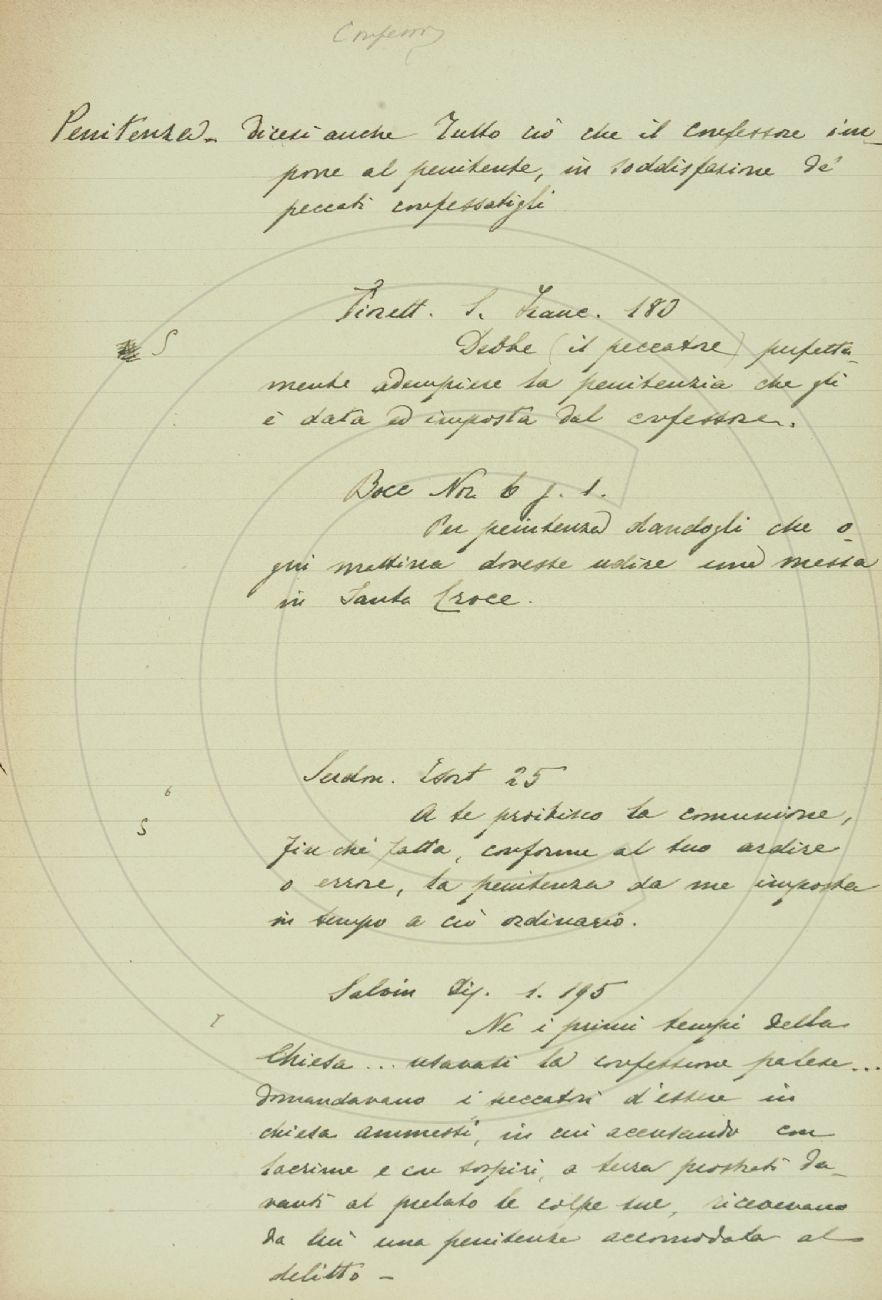 Confessor
Penitenza - Dicesi anche Tutto ciò che il confessore im-
pone al penitente, in soddisfazione de'
peccati confessatigli
Fiorett. S. Franc. 180
S Debbe (il peccatore) perfetta-
mente adempiere la penitenzia che gli
è data ed imposta dal confessore.
Bocc Nov. 6 g. 1.
Per penitenza dandogli che o-
gni mattina dovesse udire una messa
in Santa Croce.
Esort 25
6
S A te proibisco la comunione,
finchè fatta, conforme al tuo ardire
o errore, la penitenza da me imposta
in tempo a ciò ordinario.
Salvin Dis. 1. 195
Ne i primi tempi della
Chiesa... usavasi la confessione palese...
domandavano i peccatori d'essere in
chiesa ammessi, in cui accusando con
lacrime e con sospiri, a terra prostrati da-
vanti al prelato le colpe sue, ricevevano
da lui una penitenza accomodata al
delitto -